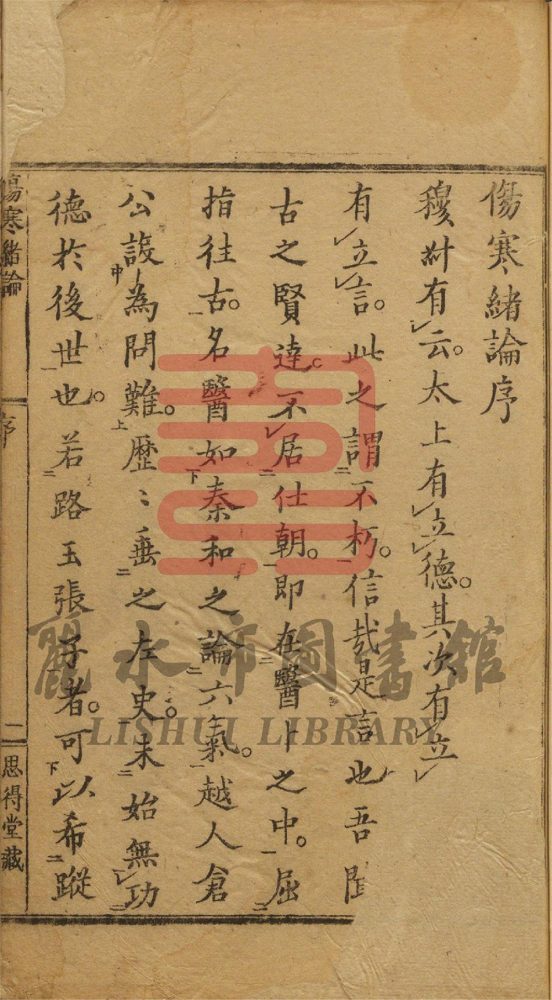 傷寒緒論序
穆叔有云。太上有立德。其次有立
有立言。此之謂不朽。信哉是言也吾聞
古之賢達。不居仕朝。即在醫卜之中。屈
指往古。名醫如秦和之論六氣。越人倉
公設為問難。歷〻垂之左史。未始無功
德於後世也。若路玉張子者。可以希蹤
傷寒緒論
序
二
思得堂藏
麗水市圖書館
LISHUI LIBRARY